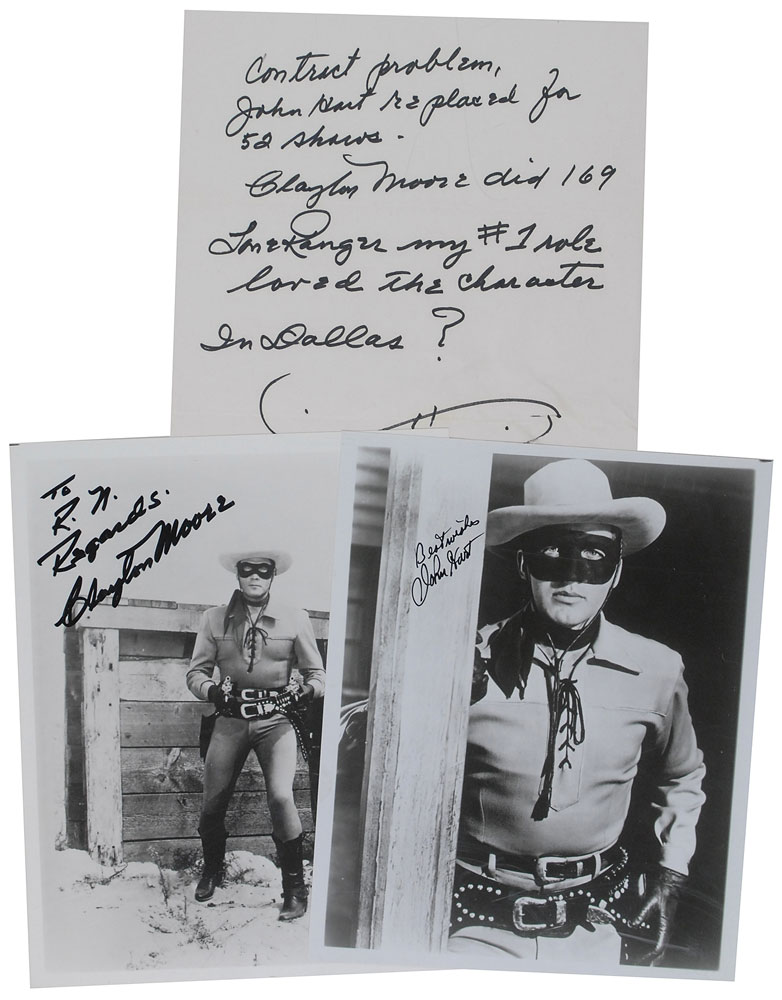 Contract problem,
John Hart replaced for
52 shows.
Clayton Moore did 169
Lone Ranger my #1 role
loved the character
In Dallas ?
To
R. N.
Regards.
Clayton Moore
Best wishes
John Hart